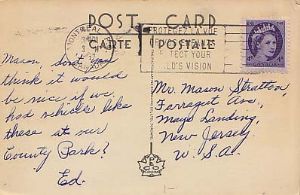 POST CARD
CARTE POSTALE
MONTREAL
PROTEGEZ LA VUE
TECT YOUR
LD'S VISION
Mason, don't you
think it would
be nice if we
had vehicles like
these at our
County Park?
Ed.
Mr. Mason Stratton,
Farragut Ave,
Mays Landing,
New Jersey
U.S.A.